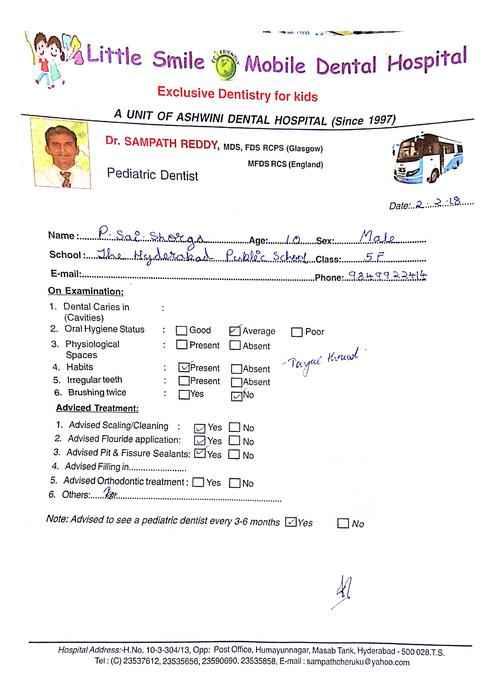 Little Smile Mobile Dental Hospital
Exclusive Dentistry for kids
A UNIT OF ASHWINI DENTAL HOSPITAL (Since 1997)
Dr. SAMPATH REDDY, MDS, FDS RCPS (Glasgow)
MFDS RCS (England)
Pediatric Dentist
Date: 2.2.18
Name: P. Sai Age: 10 Sex: Male
School: The Hyderabad Public School Class: 5 F
E-mail: Phone: 9849922414
On Examination:
1. Dental Caries in :
(Cavities)
2. Oral Hygiene Status : Good Average Poor
3. Physiological : Present Absent
Spaces
4. Habits : Present Absent
5. Irregular teeth : Present Absent
6. Brushing twice : Yes No
Adviced Treatment:
1. Advised Scaling/Cleaning : Yes No
2. Advised Flouride application: Yes No
3. Advised Pit & Fissure Sealants: Yes No
4. Advised Filling in
5. Advised Orthodontic treatment : Yes No
6. Others:
Note: Advised to see a pediatric dentist every 3-6 months Yes No
Hospital Address:-H.No. 10-3-304/13, Opp: Post Office, Humayunnagar, Masab Tank, Hyderabad - 500 028.T.S.
Tel : (C) 23537612, 23535656, 23590690, 23535858, E-mail : sampathcheruku@yahoo.com